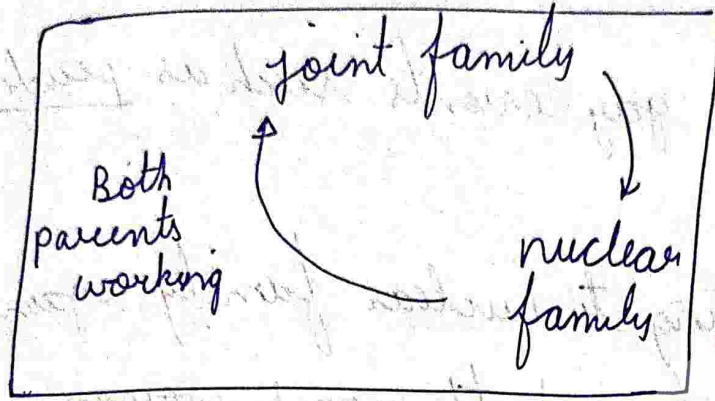 joint family
Both
parents
working
nuclear
family